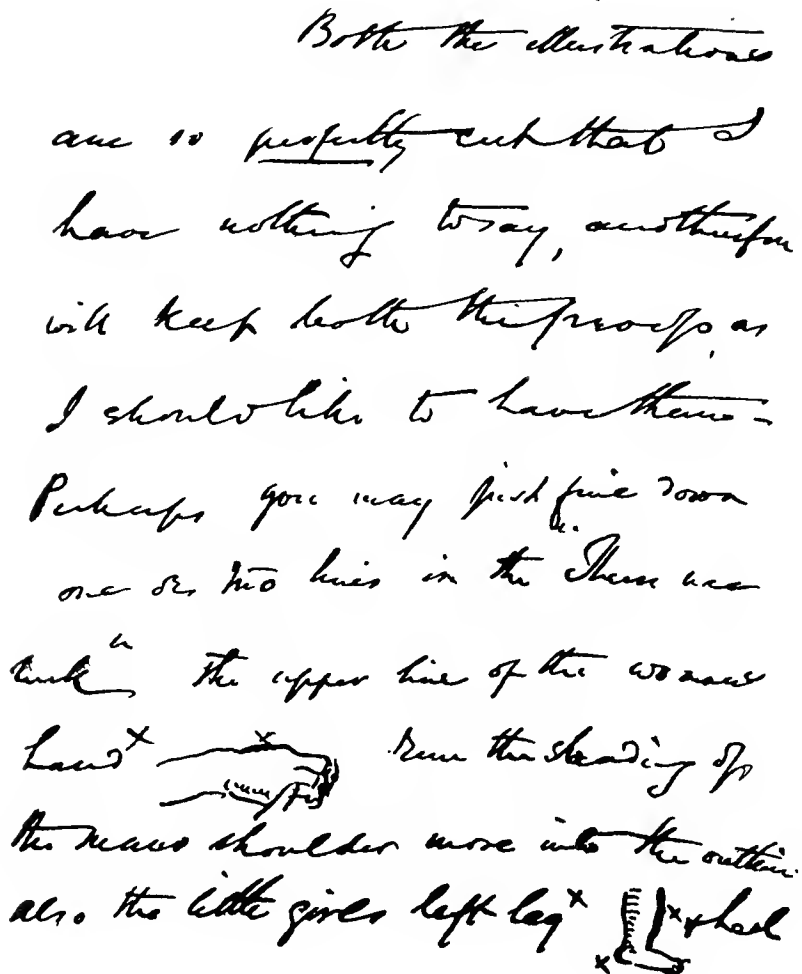 Both the illustrations
are so perfectly cut that I
have nothing to say, and therefore
will keep both the proofs, as
I should like to have them -
Perhaps you may just fine down
one or two lines in the "There was
luck" The upper line of the womans
hand x x Run the shading of
the mans shoulder more into the outline
also the little girls left leg x x x & heel
x